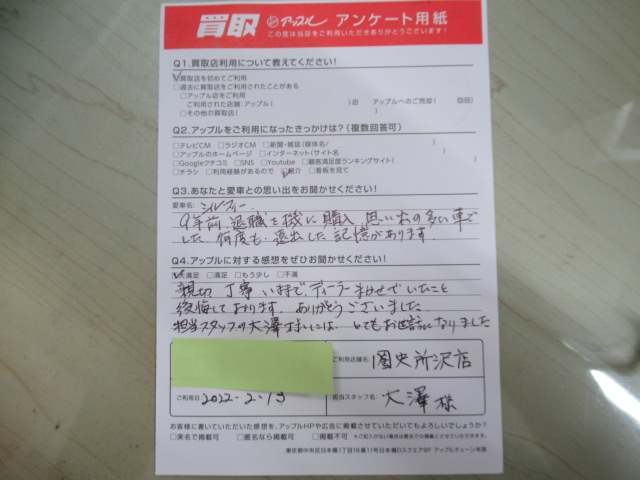 買取 アップル アンケート用紙
この度は当店をご利用いただきありがとうございます！
Q1.買取店利用について教えてください！
☑買取店を初めてご利用
□過去に買取店をご利用されたことがある
□アップル店をご利用
ご利用された店舗：アップル（ ）店 アップルへのご売却（ 回目）
□その他の買取店（ ）
Q2.アップルをご利用になったきっかけは？（複数回答可）
□テレビCM □ラジオCM □新聞・雑誌（媒体名/ ）
□アップルのホームページ □インターネット（サイト名 ）
□Googleクチコミ □SNS □Youtube □顧客満足度ランキングサイト（ ）
□チラシ □利用経験があるので ☑紹介 □看板を見て
Q3.あなたと愛車との思い出をお聞かせください！
愛車名： シルフィー
9年前、退職を機に購入 思い出の多い車で
した 何度も 遠出した記憶があります。
Q4.アップルに対する感想をぜひお聞かせください！
☑大満足 □満足 □もう少し □不満
親切 丁寧 いままで、ディーラーまかせでいたこと
後悔しております。ありがとうございました
担当スタッフの大澤さまには、とてもお世話になりました
ご利用店舗名： 所沢店
ご利用日 2022-2.13 担当スタッフ名： 大澤様
お客様に書いていただいた感想を、アップルHPや広告に掲載させていただいてもよろしいでしょうか？
□実名で掲載可 □匿名なら掲載可 □掲載不可 ※ご記入がない場合は匿名での掲載とさせていただきます。
東京都中央区日本橋1丁目16番11号日本橋Dスクエア8F アップルチェーン本部